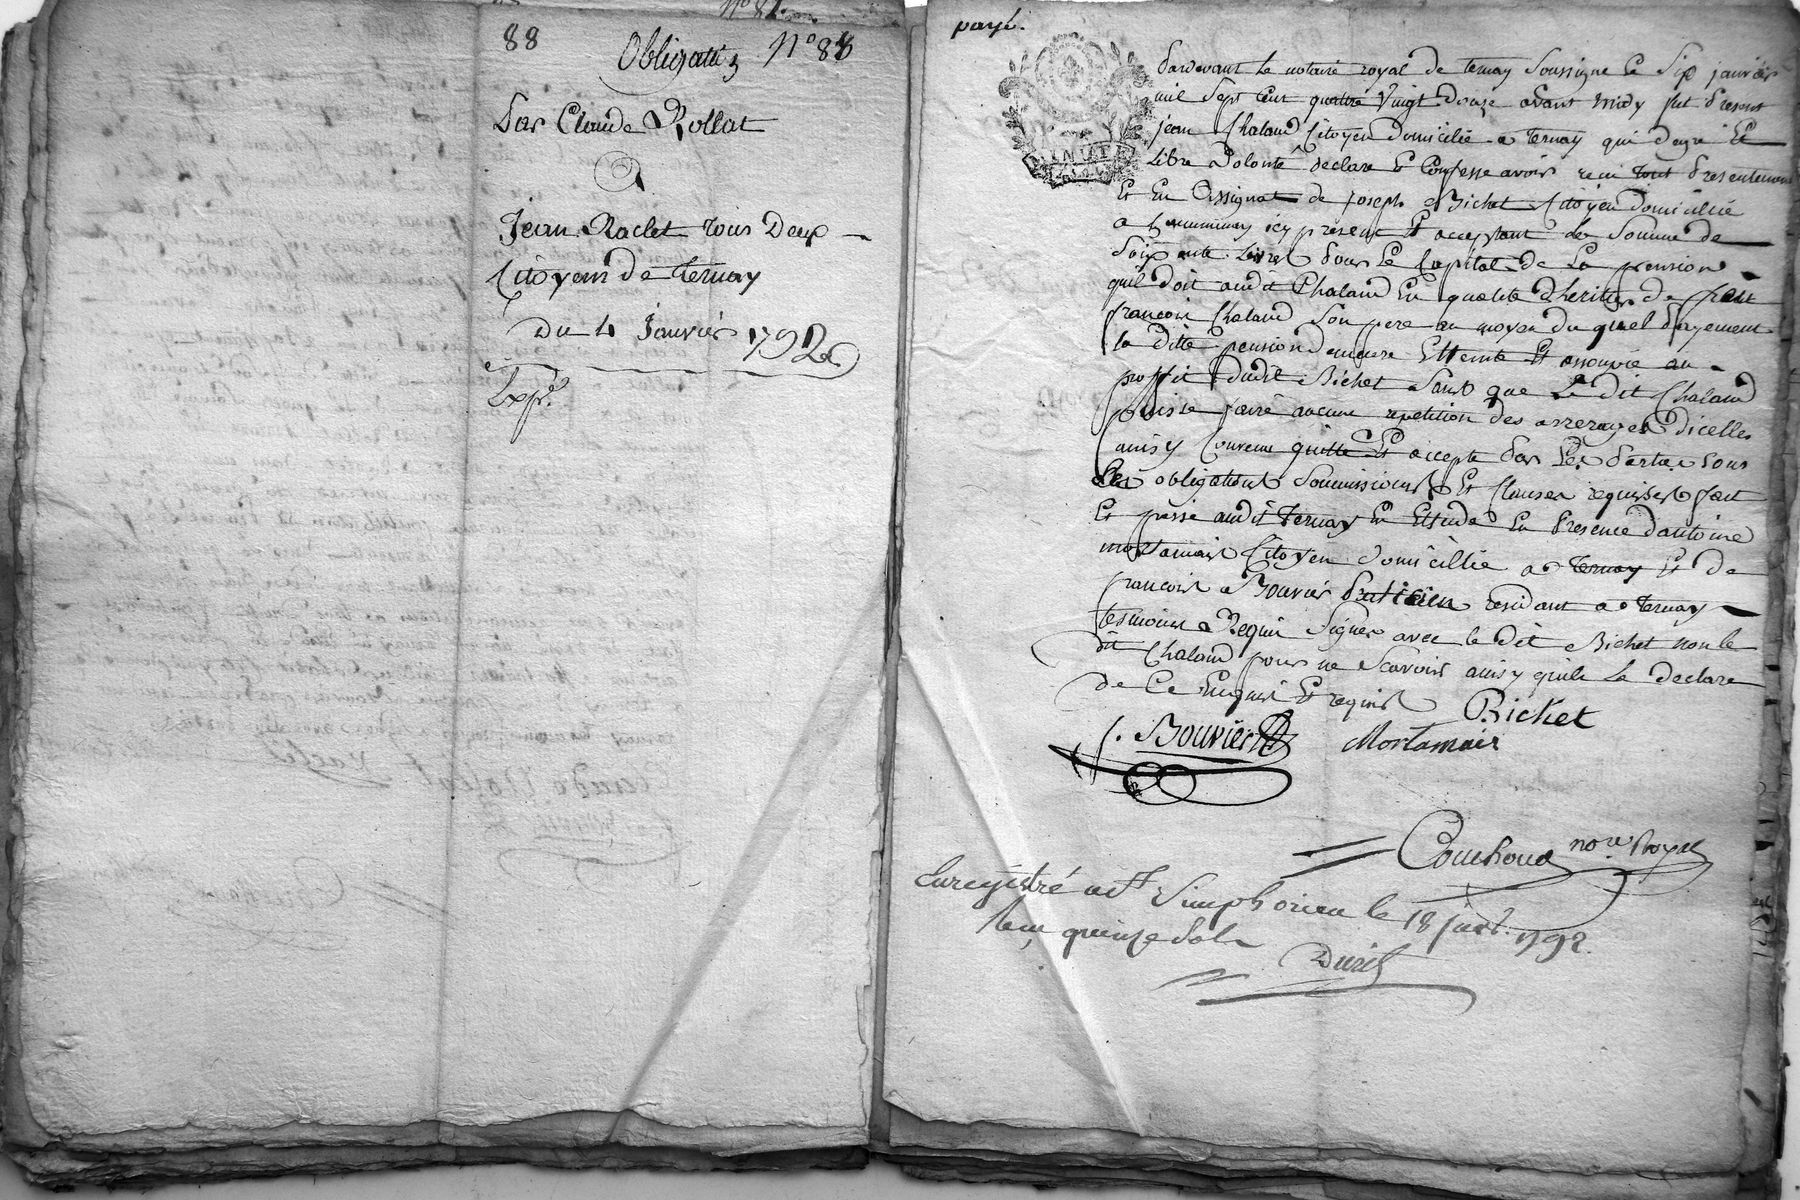 nº 87.
88
Obligatiõ Nº 88
Par Claude Rollat
A
Jean Raclet tous Deux
Citoyens de Ternay
Du 4 Janvier 1792
Expé
payé.
Pardevant le notaire royal de ternay Soussigné le Six janvier
mil Sept Cent quatre Vingt Douze avant midy fut present
jean Chaland Citoyen domicilié a Ternay qui de gre Et
Libre Volonté declare Et Confesse avoir recu tout presentement
Et En Assignat de joseph Bichet Citoyen domicillié
a Communay icy present Et acceptant la Somme de
Soixante Livres pour Le Capital de La pension
quil doit audit Chaland En qualité dheritier de feu
françois Chaland Son pere au moyen du quel payement
la ditte pension demeure Etteinte Et assouvie au
proffit dudit Bichet Sans que Le dit Chaland
puisse faire aucune repetition des arrerages dicelle
ainsy Convenu quitté Et accepté par Les parties sous
Les obligations Soumissions Et Clauses requises fait
Et passé audit Ternay En Ettude En presence dantoine
mortamais Citoyen domicillié a Ternay Et de
françois Bouvier praticien residant a Ternay
temoins Requis Signés avec le dit Bichet non le
dit Chaland pour ne Scavoir ainsy quil La declaré
de Ce Enquis Et requis
Bichet
f. Bouvier
Mortamais
Couchoud nore Royal
Enregistré a St Simphorien le 18 janv. 1792.
Recu quinze sols